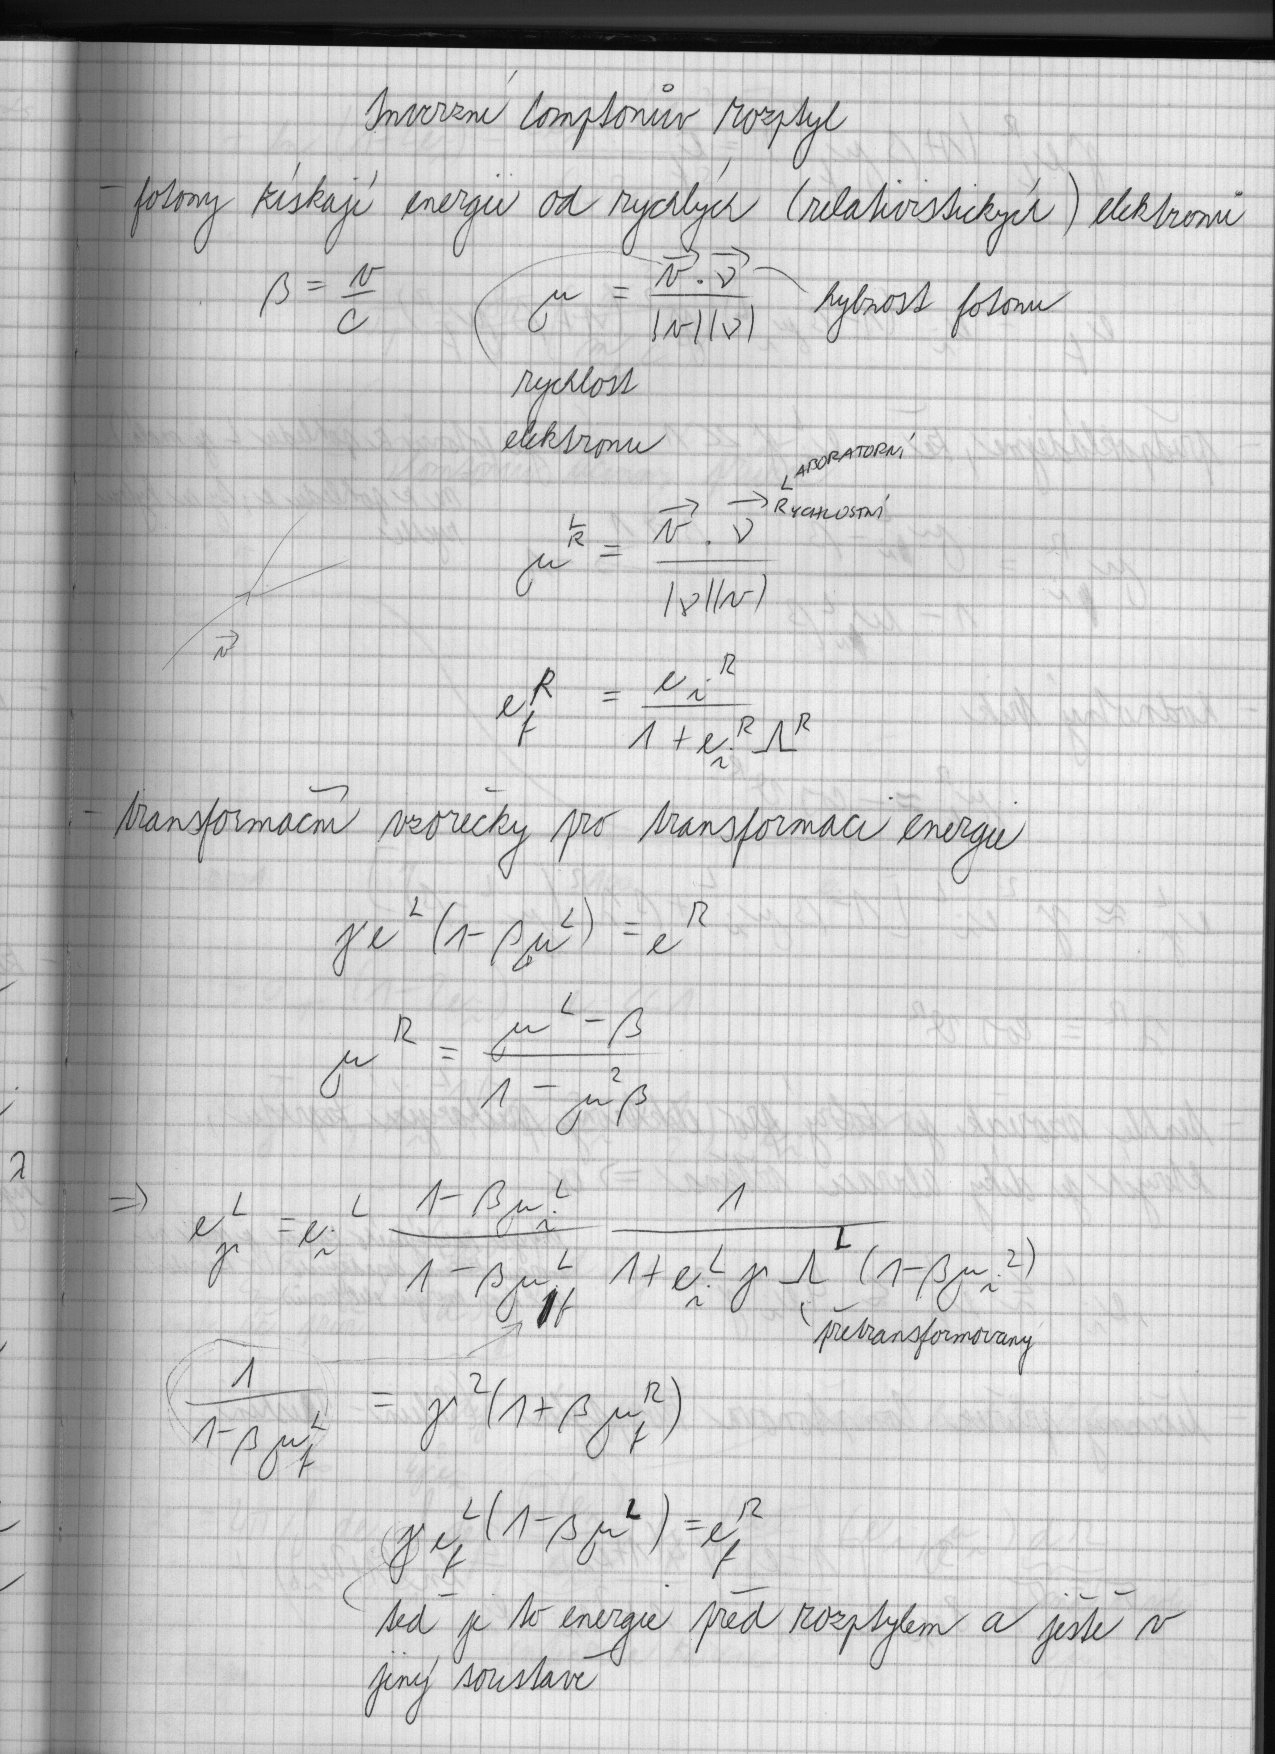 Inverzní Comptonův rozptyl
- fotony získají energii od rychlých (relativistických) elektronů
β = v/c    μ = (v⃗ · ν⃗)/(|v||ν|)    hybnost fotonu
rychlost
elektronu
LABORATORNÍ
RYCHLOSTNÍ
μ^{L R} = (v⃗ · ν⃗)/(|ν||v|)
v⃗
e_f^R = e_i^R/(1 + e_i^R Λ^R)
- transformační vzorečky pro transformaci energie
γe^L(1-βμ^L) = e^R
μ^R = (μ^L - β)/(1 - μ^2β)
⇒ e_γ^L = e_i^L (1-βμ_i^L)/(1-βμ_f^L) 1/(1+e_i^L γ Λ^L (1-βμ_i^L))
přetransformovaný
1/(1-βμ_f^L) = γ^2(1+βμ_f^R)
γe_f^L(1-βμ^L) = e_f^R
teď je to energie před rozptylem a ještě v
jiný soustavě